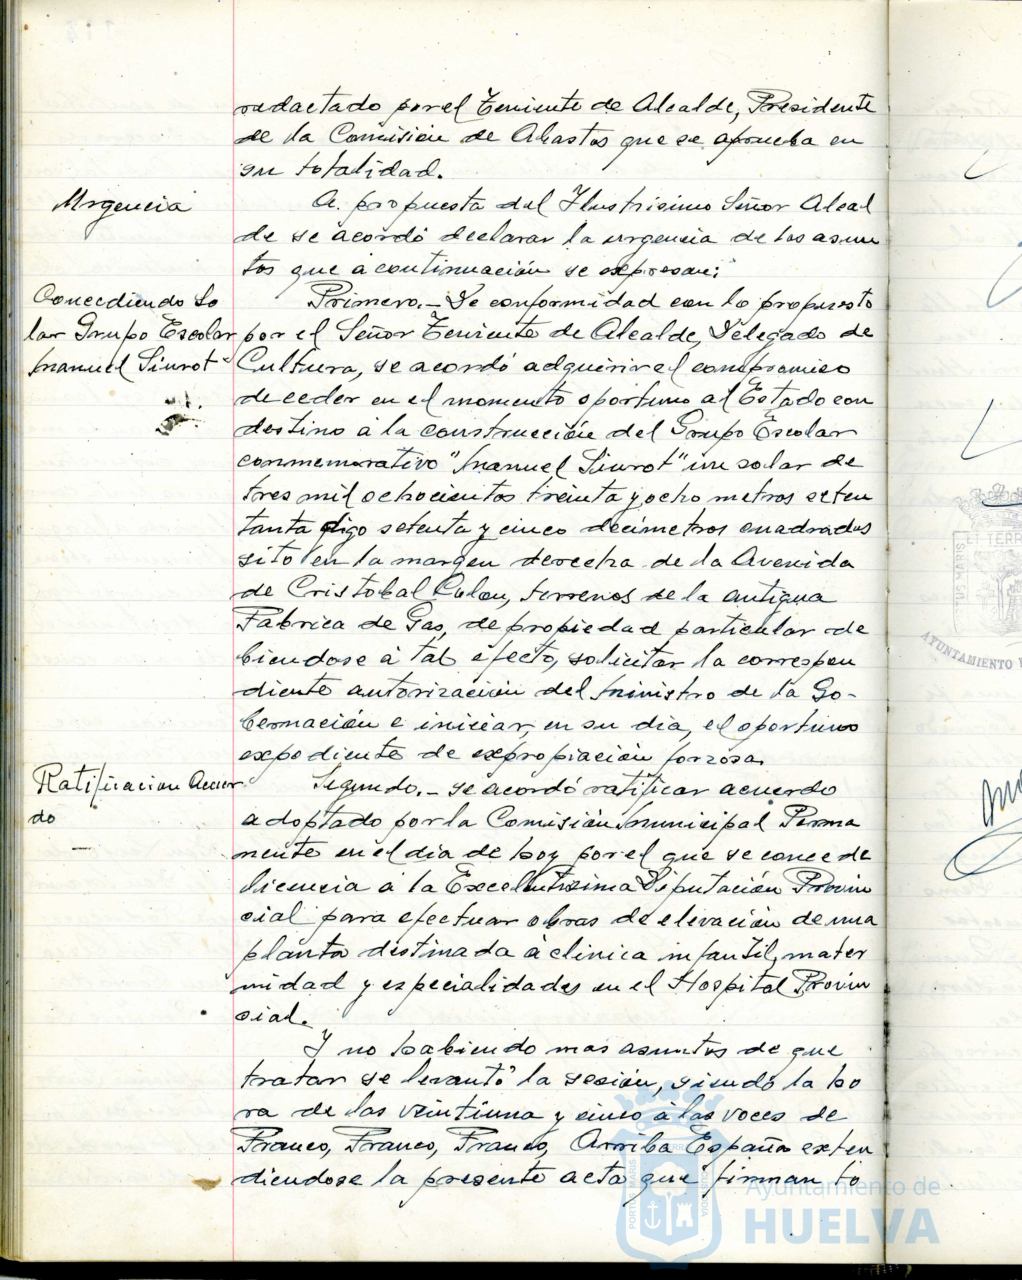 redactado por el Teniente de Alcalde, Presidente
de la Comisión de Abastos que se aprueba en
su totalidad.
Urgencia
A propuesta del Ilustrisimo Señor Alcal
de se acordó declarar la urgencia de los asun
tos que á continuación se expresan:
Concediendo So
lar Grupo Escolar
Manuel Siurot"
Primero.- De conformidad con lo propuesto
por el Señor Teniente de Alcalde, Delegado de
Cultura, se acordó adquirir el compromiso
de ceder en el momento oportuno al Estado con
destino á la construcción del Grupo Escolar
conmemorativo "Manuel Siurot" un solar de
tres mil ochocientos treinta y ocho metros seten
tanta digo setenta y cinco decimetros cuadrados
sito en la margen derecha de la Avenida
de Cristobal Colon, terrenos de la antigua
Fabrica de Gas, de propiedad particular de
biendose á tal efecto, solicitar la correspon
diente autorización del Ministro de la Go-
bernación e iniciar, en su dia, el oportuno
expediente de expropiación forzosa.
Ratificacion Acuer
do
Segundo.- se acordó ratificar acuerdo
adoptado por la Comisión Municipal Perma
nente en el dia de hoy por el que se concede
licencia á la Excelentisima Diputación Provin
cial para efectuar obras de elevación de una
planta destinada á clinica infantil, mater
nidad y especialidades en el Hospital Provin
cial.
Y no habiendo mas asuntos de que
tratar se levantó la sesión, siendo la ho
ra de las veintiuna y cinco á las voces de
Franco, Franco, Franco, Arriba España exten
diendose la presente acta que firman to
Ayuntamiento de
HUELVA